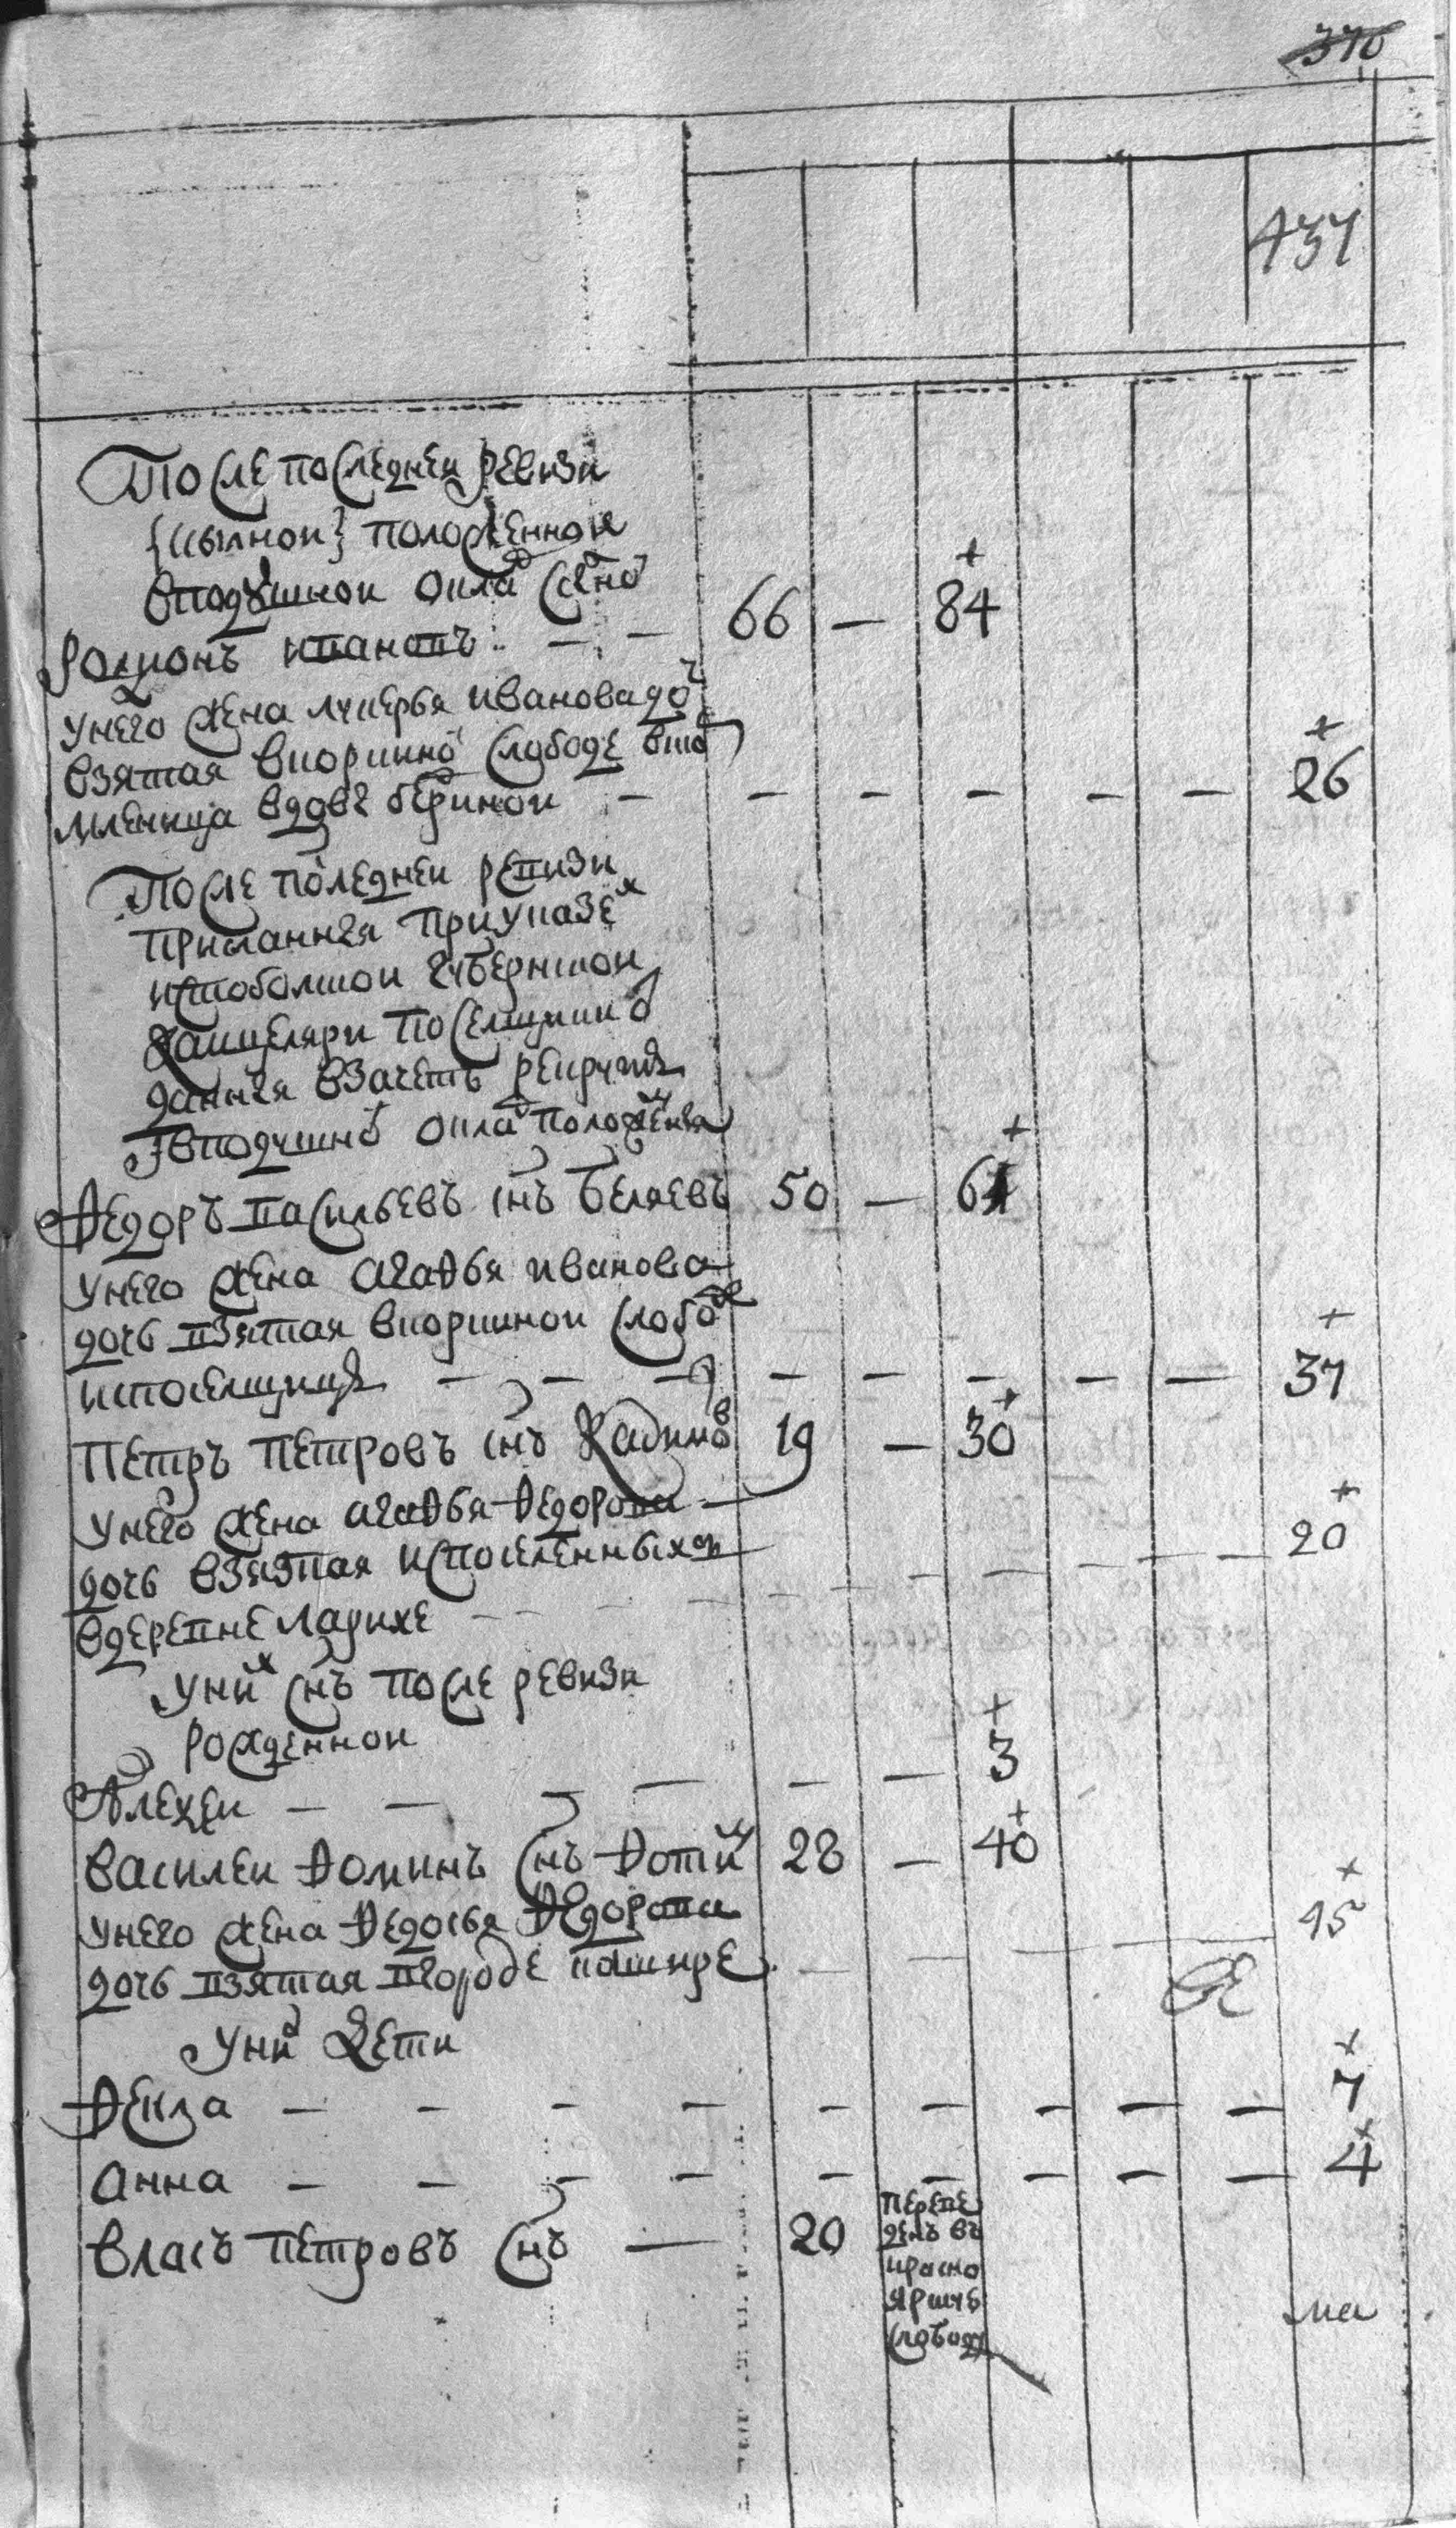 376
437
После последней ревизи
{ссылной} положенной
в подушной оклад сосланой
Родионъ Ивановъ — — 66 — 84
у него жена Лукерья Иванова дочь
взятая в коркиной слободе
вдове — — — — — — 26
После последней ревизи
присланныя при указех
ис Тоболской губернской
канцеляри поселщики
данныя взачетъ рекрутъ
в подушной оклад положеныя
Федоръ Васильевъ снъ Беляевъ 50 — 61
у него жена Агафья Иванова
дочь взятая в коркиной слободе
ис поселщицъ — — — — — — — — 37
Петръ Петровъ снъ 19 — 30
у него жена Агафья Федорова —
дочь взятая ис поселенныхъ — — 20
в деревне Ладихе — — —
у них снъ после ревизи
рожденной
Алексей — — — — — — 3
Василей Фоминъ снъ 28 — 40
у него жена Федосья Федорова 15
дочь взятая в городе Кашире — —
у них дети
Фекла — — — — — — — — — 7
Анна — — — — — — — — — 4
Власъ Петровъ снъ — 20
переве
денъ въ
красно
ярскую
слободу